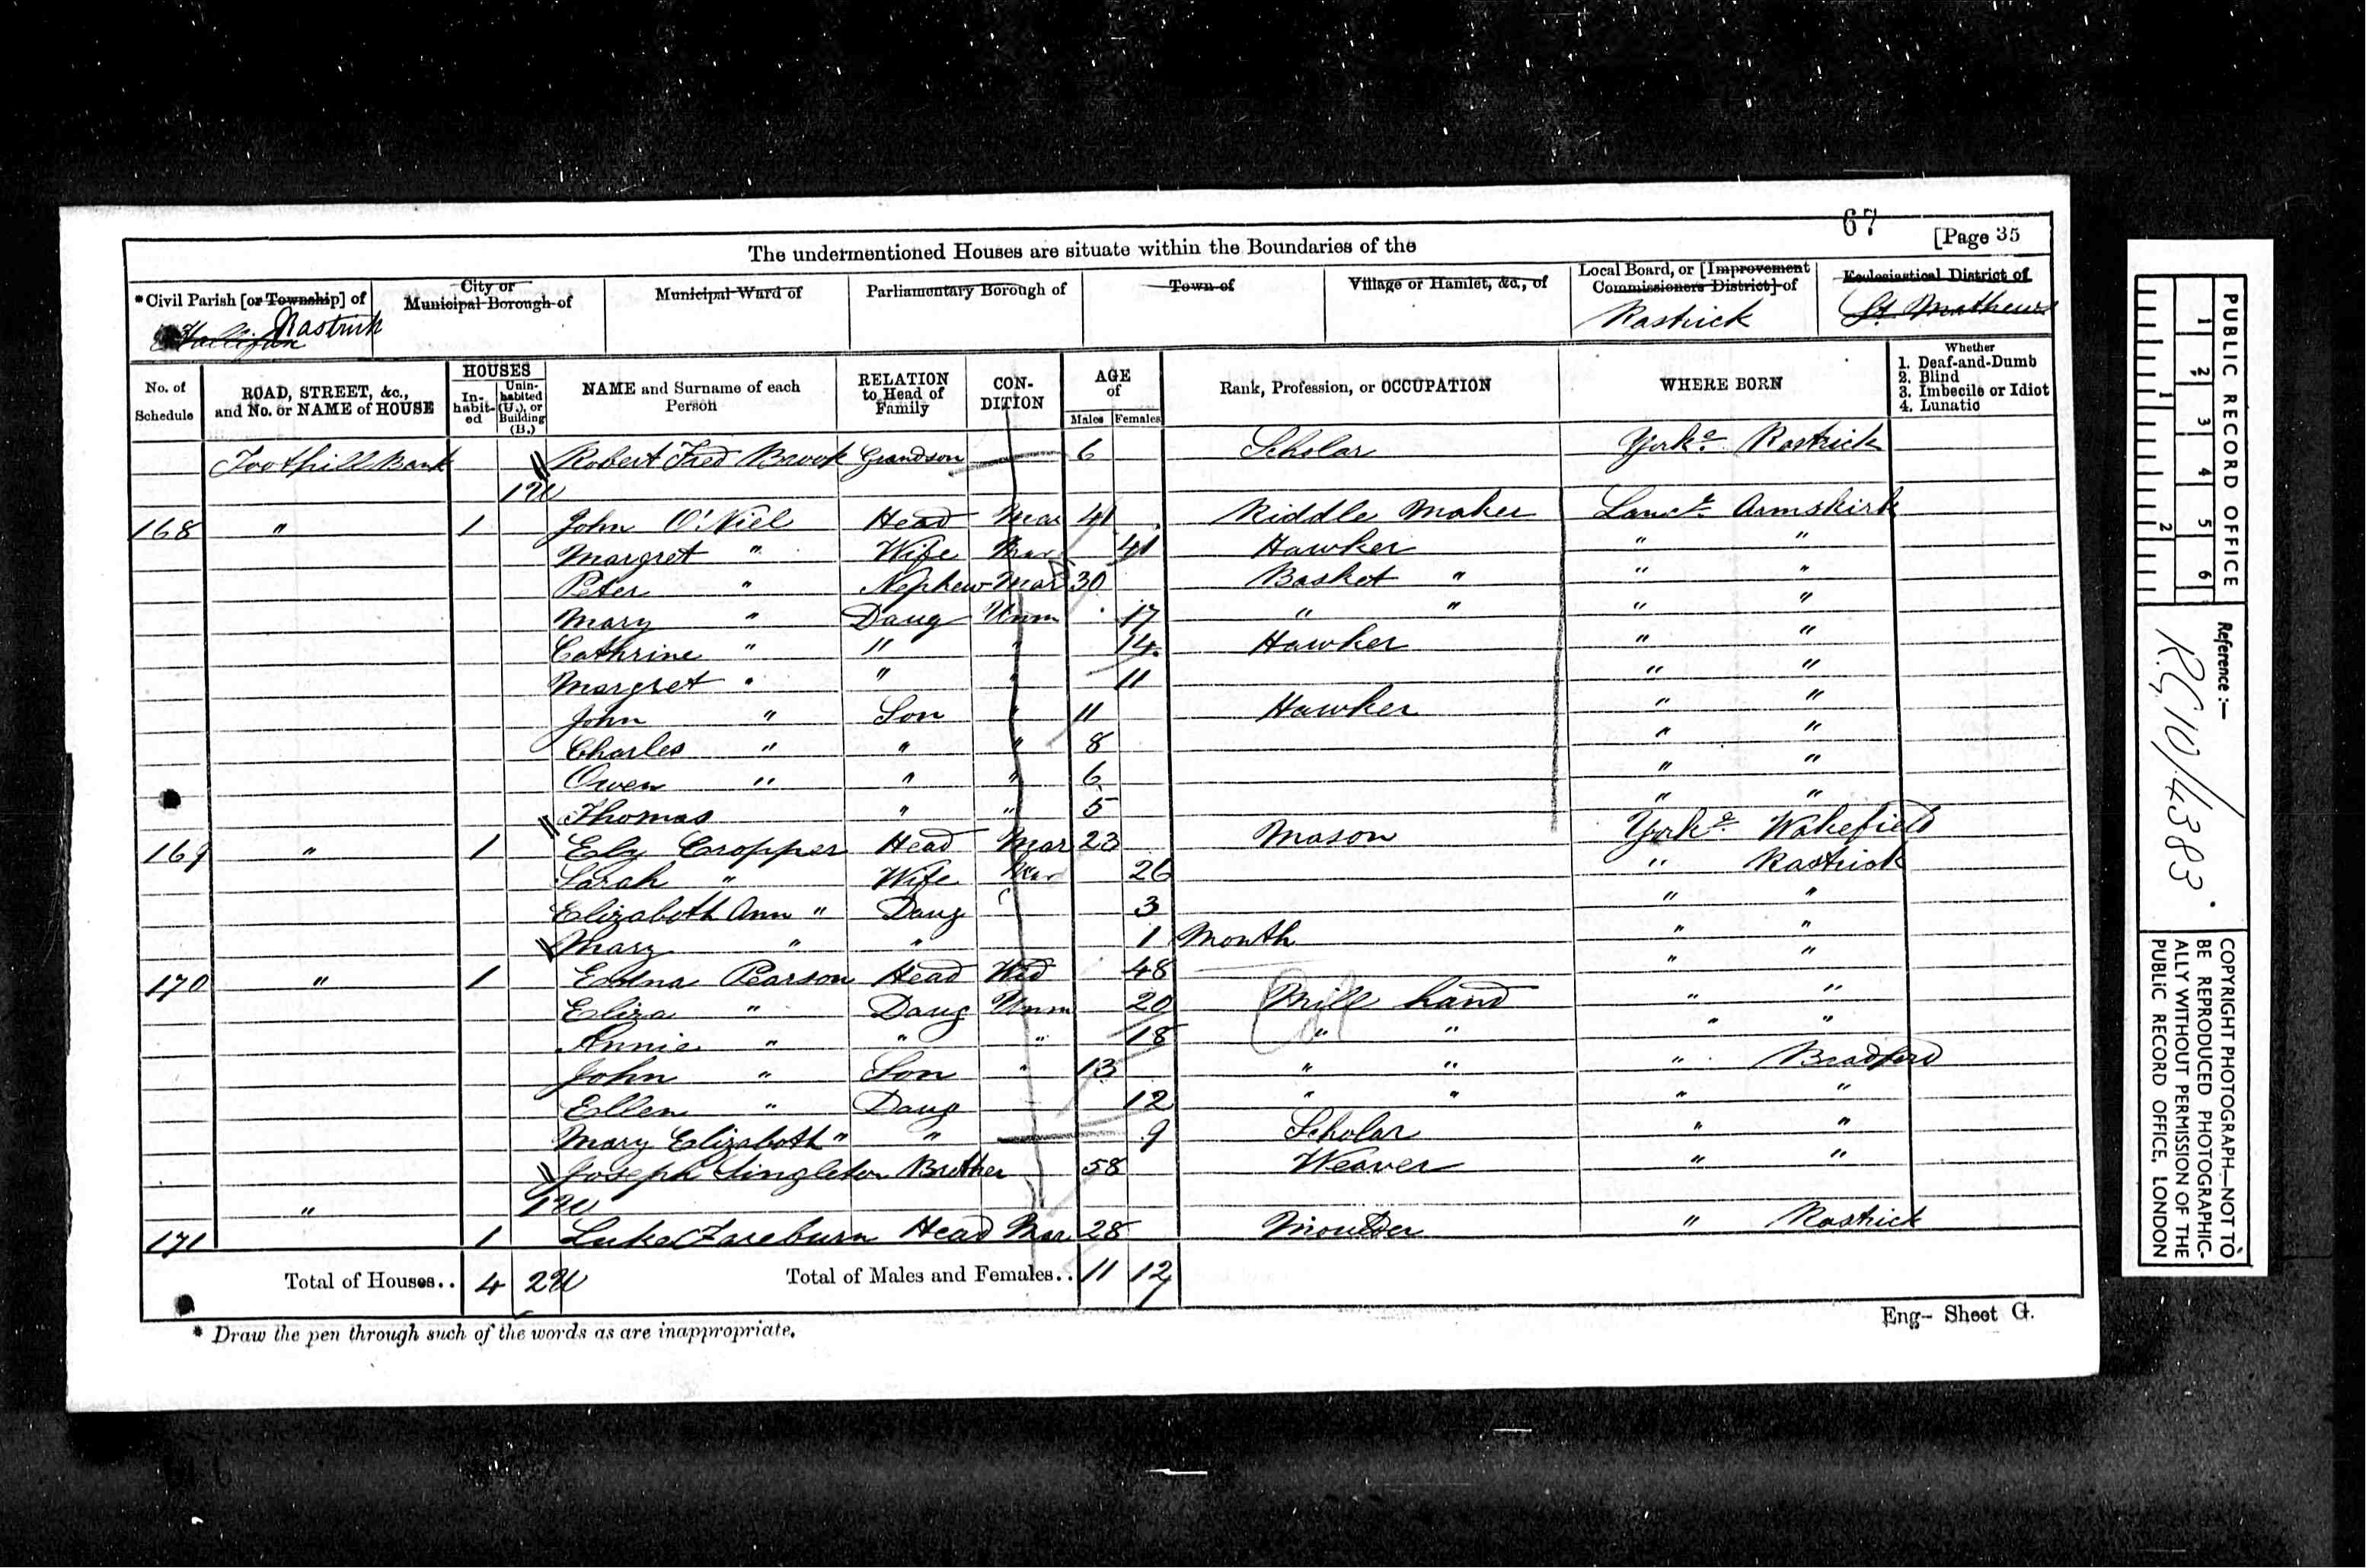 67
The undermentioned Houses are situate within the Boundaries of the [Page 35
*Civil Parish [or Township] of
City or Municipal Borough of
Municipal Ward of
Parliamentary Borough of
Town of
Village or Hamlet, &c., of
Local Board, or [Improvement Commissioners District] of
Ecclesiastical District of
Hallifax Rastrick
Rastrick
St. Mathews
No. of Schedule
ROAD, STREET, &c., and No. or NAME of HOUSE
HOUSES
In-habit-ed
Unin-habited (U.), or Building (B.)
NAME and Surname of each Person
RELATION to Head of Family
CON-DITION
AGE of
Males Females
Rank, Profession, or OCCUPATION
WHERE BORN
Whether
1. Deaf-and-Dumb
2. Blind
3. Imbecile or Idiot
4. Lunatic
Toothill Bank Robert Fred Brook Grandson 6 Scholar Yorks. Rastrick
1 U
168 " 1 John O'Niel Head Mar 41 Riddle Maker Lanc. Armskirk
Margret " Wife Mar 41 Hawker " "
Peter " Nephew Mar 30 Basket " " "
Mary " Daug Unm 17 " " " "
Cathrine " " " 14 Hawker " "
Margret " " " 11 " "
John " Son " 11 Hawker " "
Charles " " " 8 " "
Owen " " " 6 " "
Thomas " " 5 " "
169 " 1 Ely Cropper Head Mar 23 Mason Yorks. Wakefield
Sarah " Wife Mar 26 " Rastrick
Elizabeth Ann " Daug 3 " "
Mary " " 1 Month " "
170 " 1 Edna Pearson Head Wid 48 " "
Eliza " Daug Unm 20 Mill hand " "
Annie " " " 18 " " " "
John " Son " 13 " " " Bradford
Ellen " Daug 12 " " " "
Mary Elizabeth " " 9 Scholar " "
Joseph Singleton Brother 58 Weaver " "
" 1 U
171 1 Luke Fareburn Head Mar 28 Moulder " Rastrick
Total of Houses.. 4 2 U Total of Males and Females.. 11 12
* Draw the pen through such of the words as are inappropriate.
Eng- Sheet G.
PUBLIC RECORD OFFICE
1 2 3 4 5 6
1 2
Reference :-
R.G. 10/4383
COPYRIGHT PHOTOGRAPH—NOT TO BE REPRODUCED PHOTOGRAPHICALLY WITHOUT PERMISSION OF THE PUBLIC RECORD OFFICE, LONDON